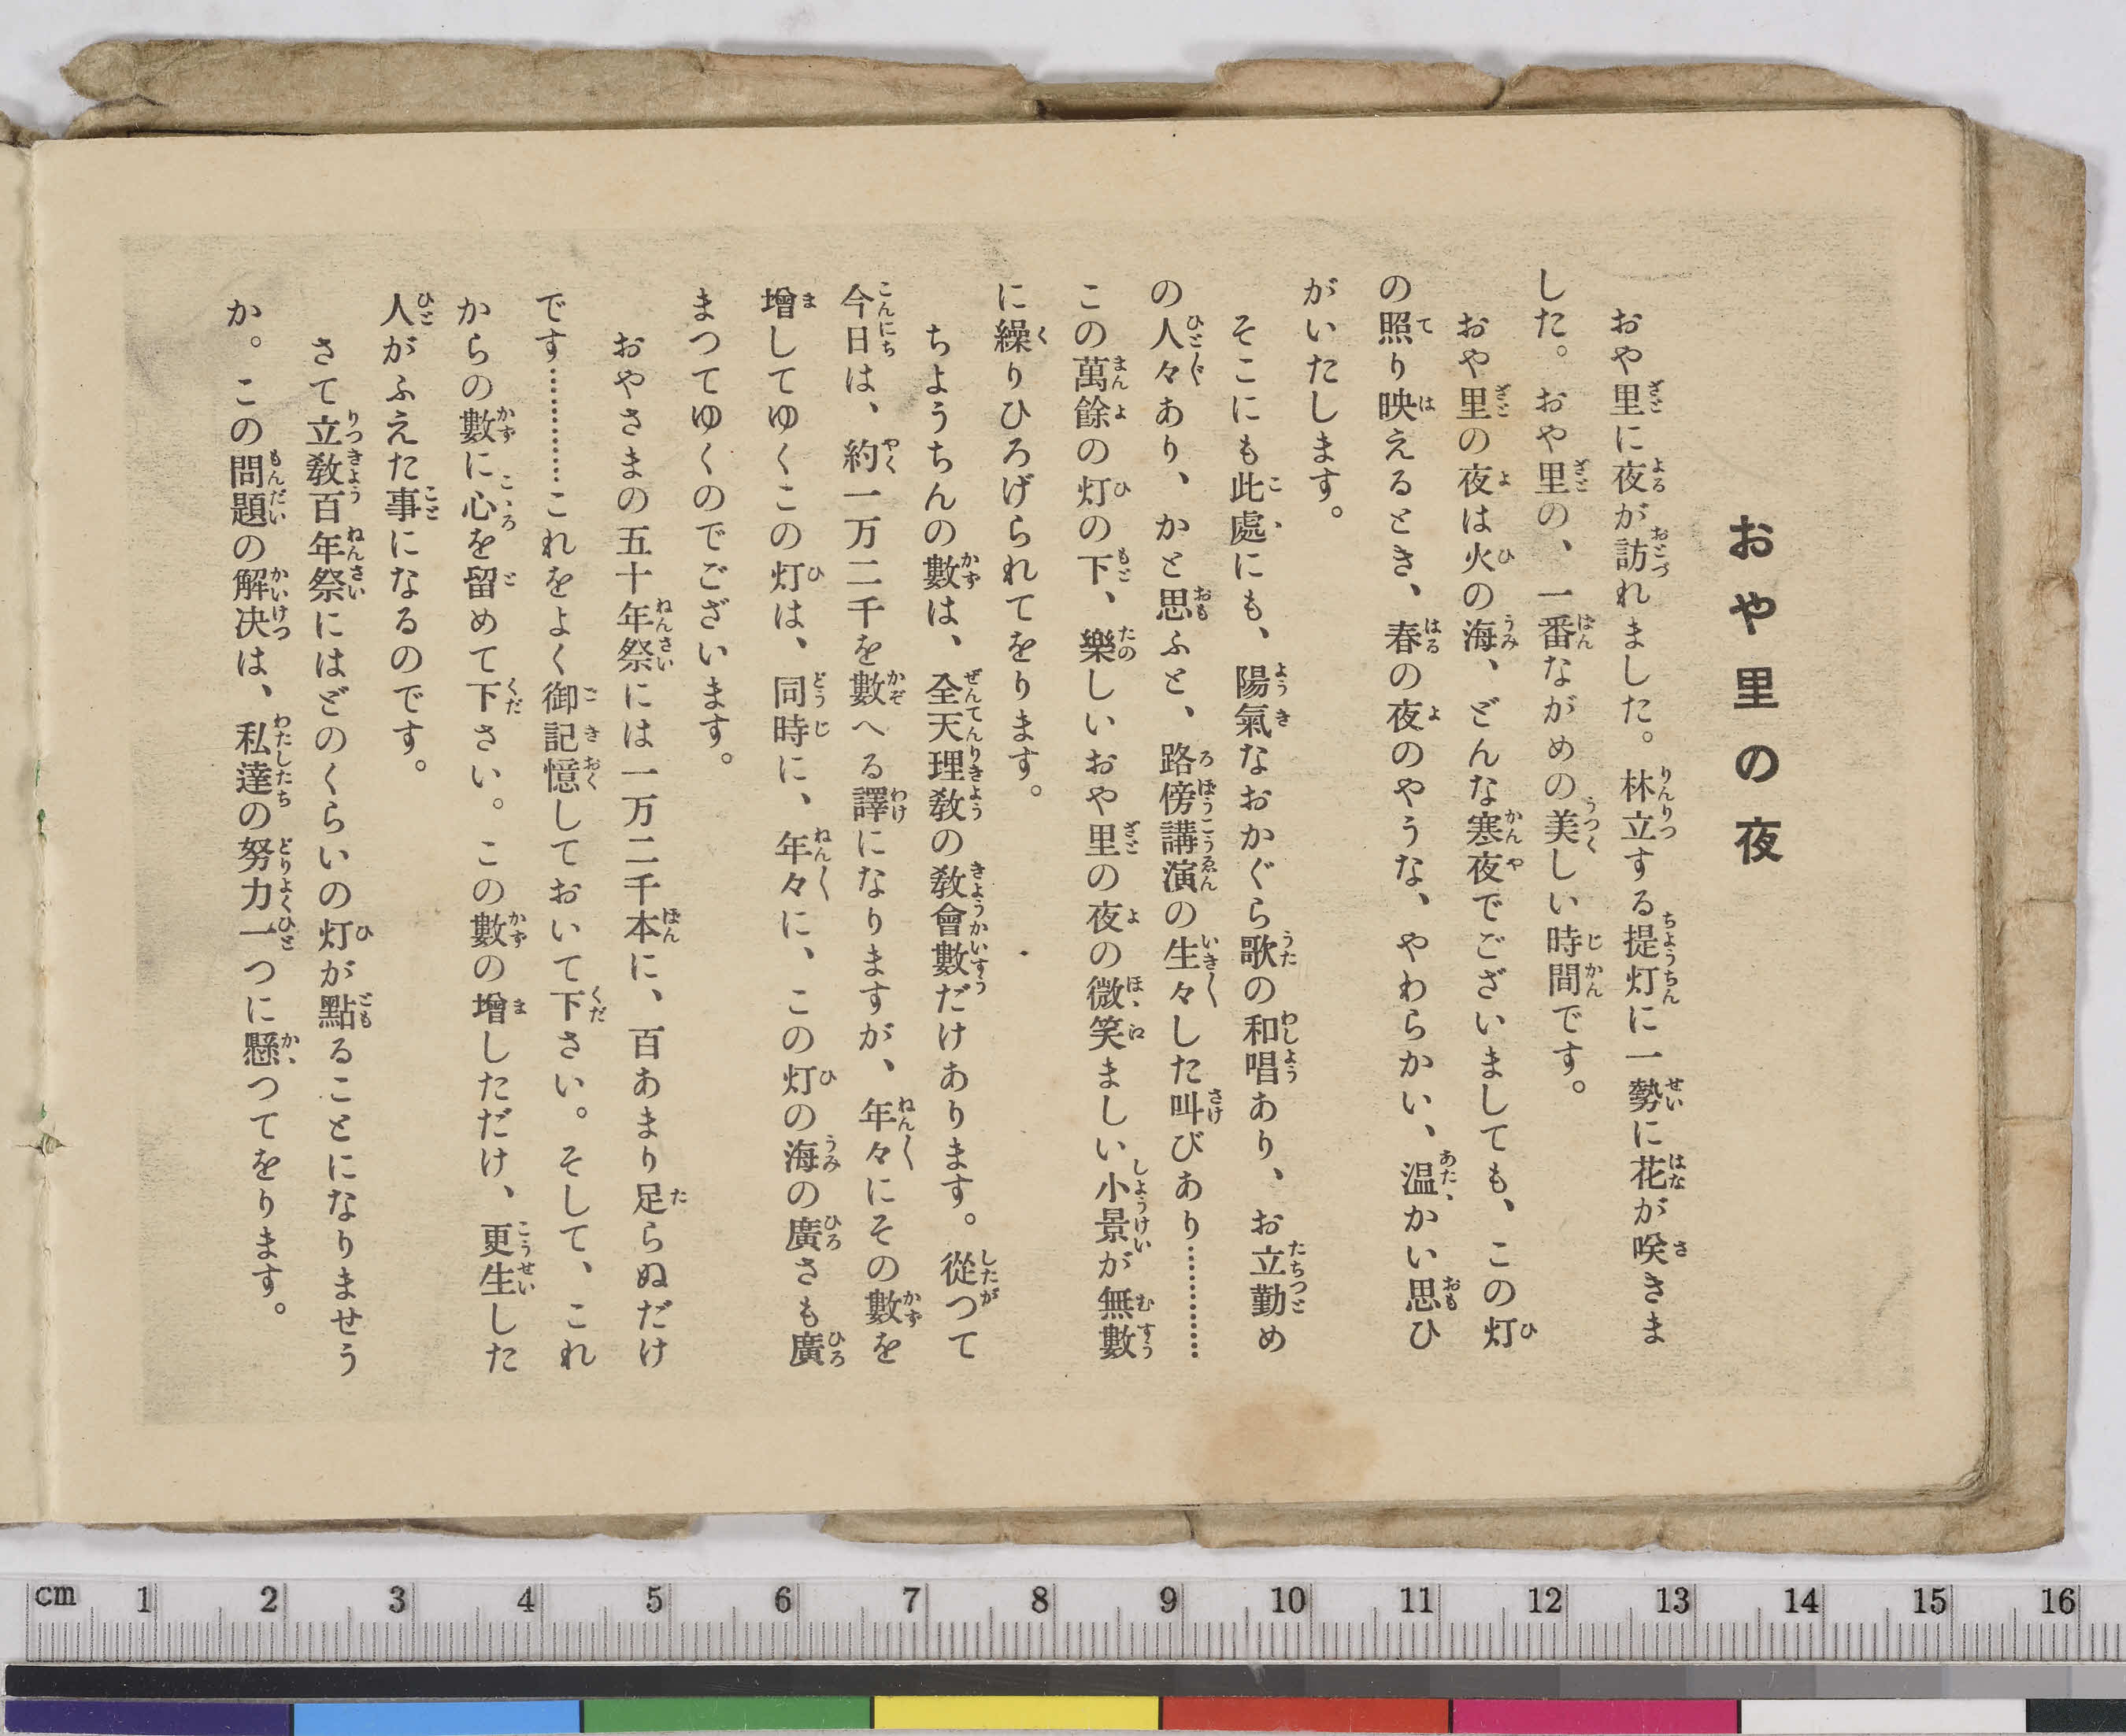 おや里の夜
おや里に夜が訪れました。林立する提灯に一勢に花が咲きま
した。おや里の、一番ながめの美しい時間です。
おや里の夜は火の海、どんな寒夜でございましても、この灯
の照り映えるとき、春の夜のやうな、やわらかい、温かい思ひ
がいたします。
そこにも此處にも、陽氣なおかぐら歌の和唱あり、お立勤め
の人々あり、かと思ふと、路傍講演の生々した叫びあり…………
この萬餘の灯の下、樂しいおや里の夜の微笑ましい小景が無數
に繰りひろげられてをります。
ちようちんの數は、全天理敎の敎會數だけあります。從つて
今日は、約一万二千を數へる譯になりますが、年々にその數を
增してゆくこの灯は、同時に、年々に、この灯の海の廣さも廣
まつてゆくのでございます。
おやさまの五十年祭には一万二千本に、百あまり足らぬだけ
です…………これをよく御記憶しておいて下さい。そして、これ
からの數に心を留めて下さい。この數の增しただけ、更生した
人がふえた事になるのです。
さて立敎百年祭にはどのくらいの灯が點ることになりませう
か。この問題の解決は、私達の努力一つに懸つてをります。
cm 1 2 3 4 5 6 7 8 9 10 11 12 13 14 15 16